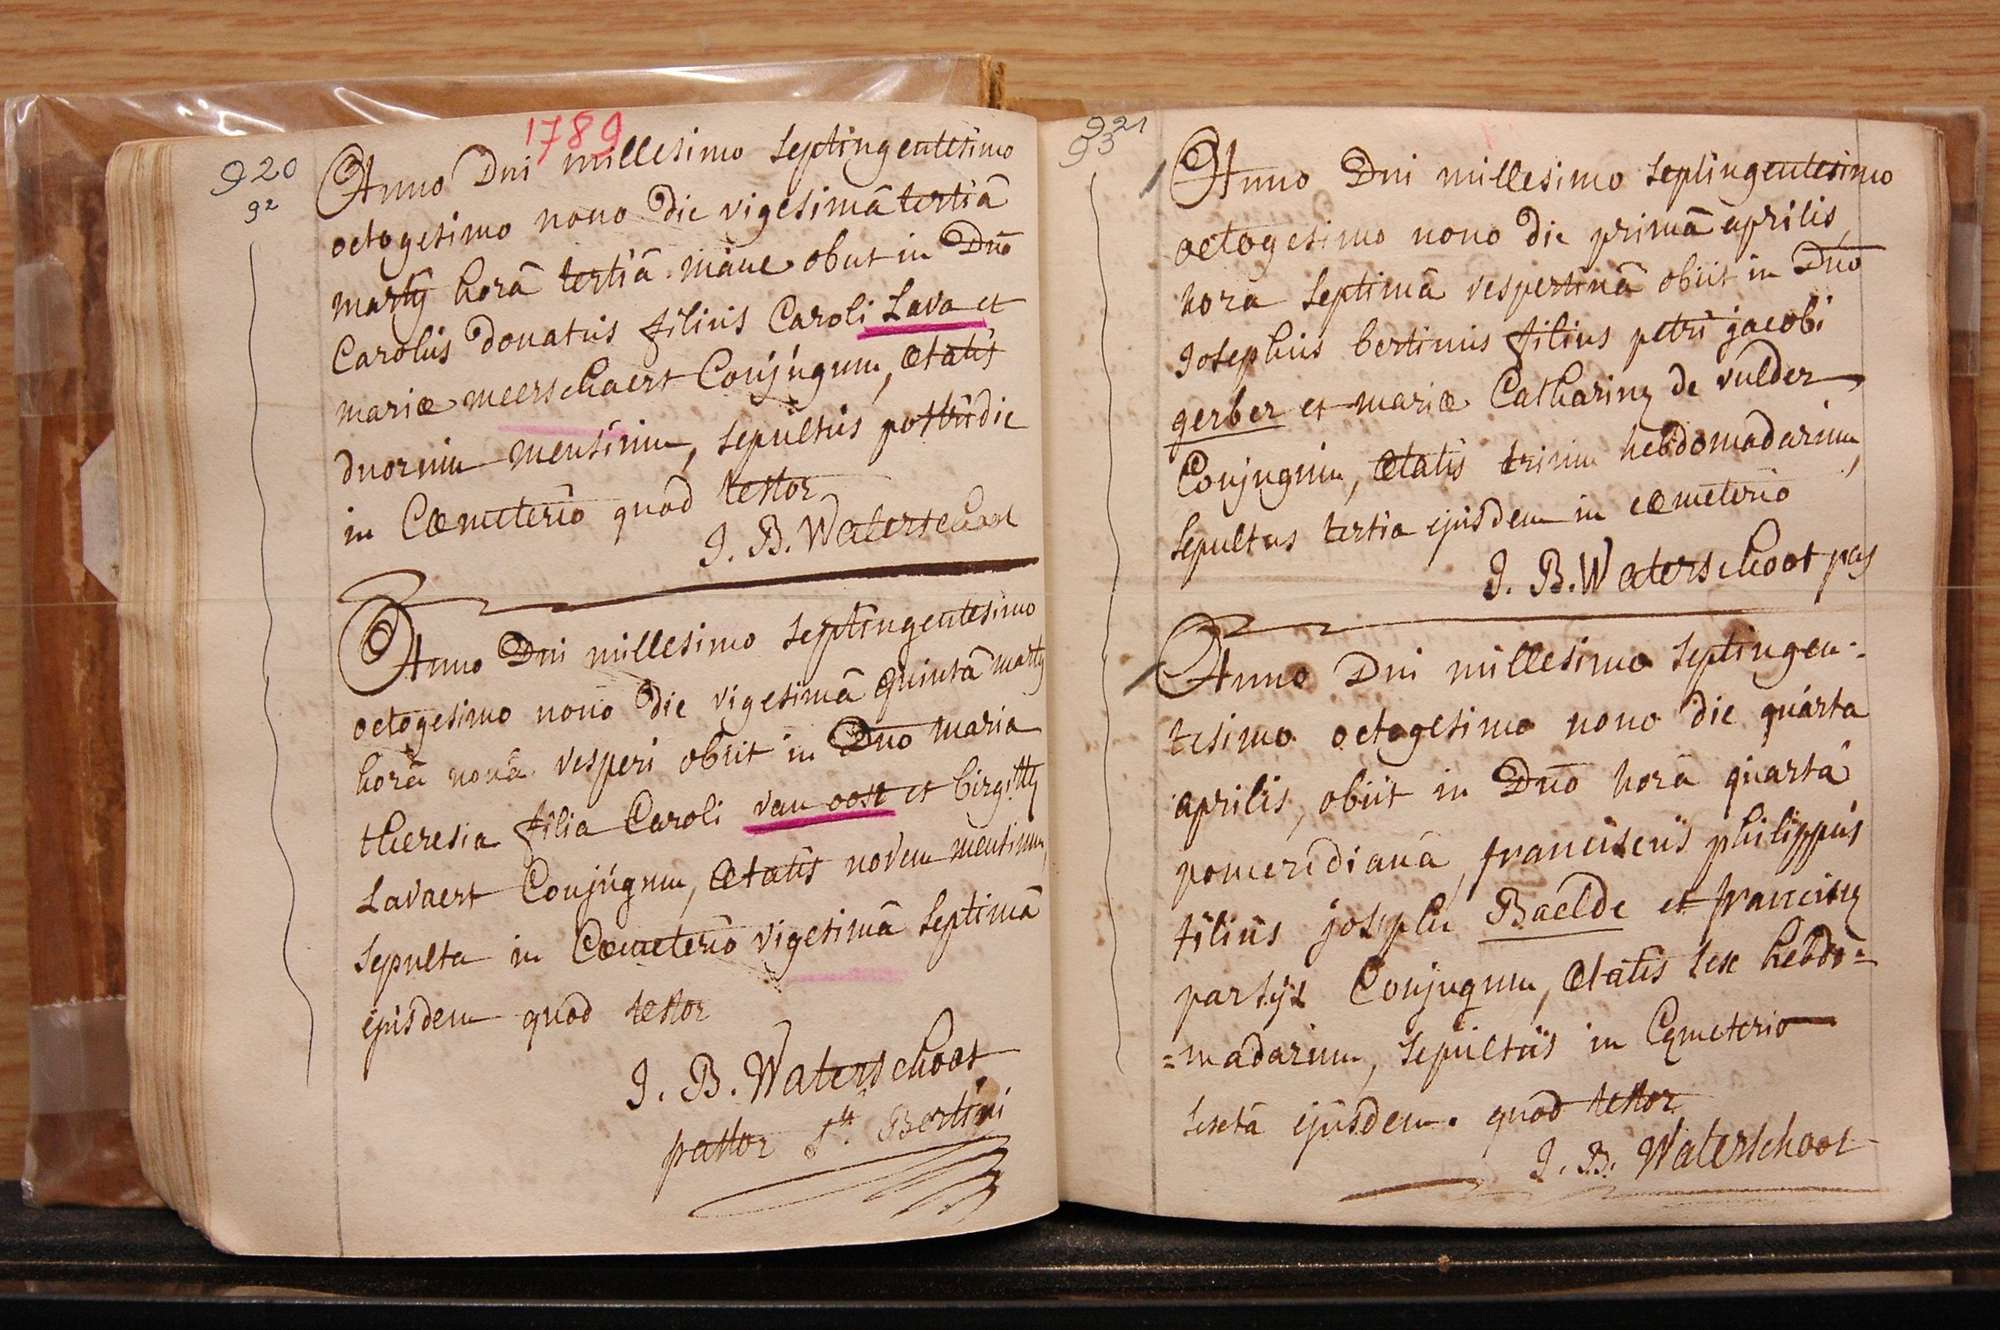 1789
920
92
Anno Dni millesimo septingentesimo
octogesimo nono die vigesimâ tertiâ
martÿ horâ tertiâ mane obiit in Dño
Carolus donatus filius Caroli Lava et
mariæ meerschaert Conjugum, ætatis
duorum mensium, sepultus postridie
in Cæmeterio quod testor
J. B. Waterschoot
Anno Dni millesimo septingentesimo
octogesimo nono die vigesimâ quintâ martÿ
horâ nonâ vesperi obiit in Dño maria
theresia filia Caroli van oost et birgittæ
Lavaert Conjugum, ætatis novem mensium,
sepulta in Cæmeterio vigesimâ septimâ
ejusdem quod testor
J. B. Waterschoot
pastor Sti Bertini
921
93
Anno Dni millesimo septingentesimo
octogesimo nono die primâ aprilis,
hora septimâ vespertinâ obiit in Dño
Josephus bertinus filius petri jacobi
gerber et mariæ Catharinæ de vulder
Conjugum, ætatis trium hebdomadarum,
sepultus tertia ejusdem in cæmeterio
J. B. Waterschoot
Anno Dni millesimo septingen-
tesimo octogesimo nono die quarta
aprilis, obiit in Dño horâ quartâ
pomeridianâ, franciscus philippus
filius josephi Baelde et franciscæ
Conjugum, ætatis sex hebdo=
=madarum, sepultus in Cæmeterio
sextâ ejusdem. quod testor
J. B. Waterschoot